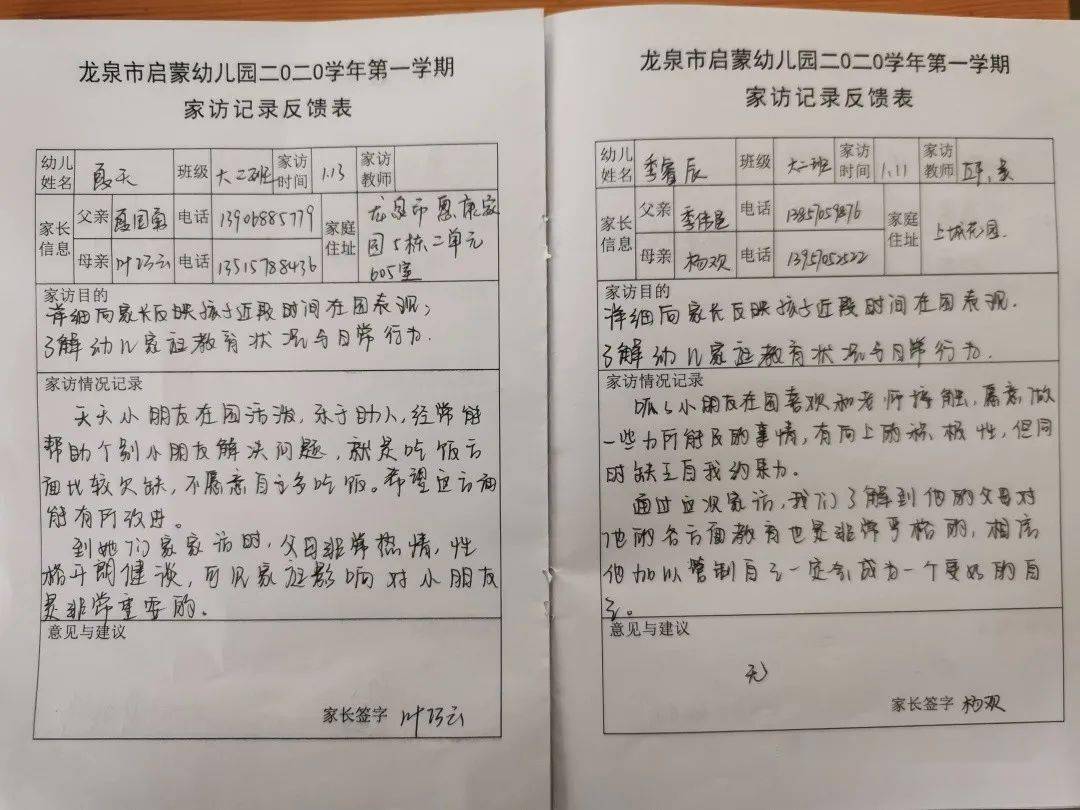 龙泉市启蒙幼儿园二0二0学年第一学期
家访记录反馈表
幼儿姓名 夏天 班级 大二班 家访时间 1.13 家访教师
家长信息 父亲 夏国勇 电话 13906885779 家庭住址 龙泉市恩康家园5栋二单元605室
母亲 叶巧云 电话 13515788436
家访目的
详细向家长反映孩子近段时间在园表现;
了解幼儿家庭教育状况与日常行为.
家访情况记录
天天小朋友在园活泼,乐于助人,经常能
帮助个别小朋友解决问题,就是吃饭方
面比较欠缺,不愿意自己多吃饭。希望这方面
能有所改进。
到她们家家访时,父母非常热情,性
格开朗健谈,可见家庭影响对小朋友
是非常重要的。
意见与建议
家长签字 叶巧云
龙泉市启蒙幼儿园二0二0学年第一学期
家访记录反馈表
幼儿姓名 季睿辰 班级 大二班 家访时间 1.11 家访教师
家长信息 父亲 季伟 电话 13857059876 家庭住址 上城花园.
母亲 杨欢 电话 13957052522
家访目的
详细向家长反映孩子近段时间在园表现.
了解幼儿家庭教育状况与日常行为.
家访情况记录
小朋友在园喜欢和老师接触,愿意做
一些力所能及的事情,有向上的积极性,但同
时缺乏自我约束力。
通过这次家访,我们了解到他的父母对
他的各方面教育也是非常严格的,相信
他加以管制自己一定会成为一个更好的自
己。
意见与建议
无
家长签字 杨欢